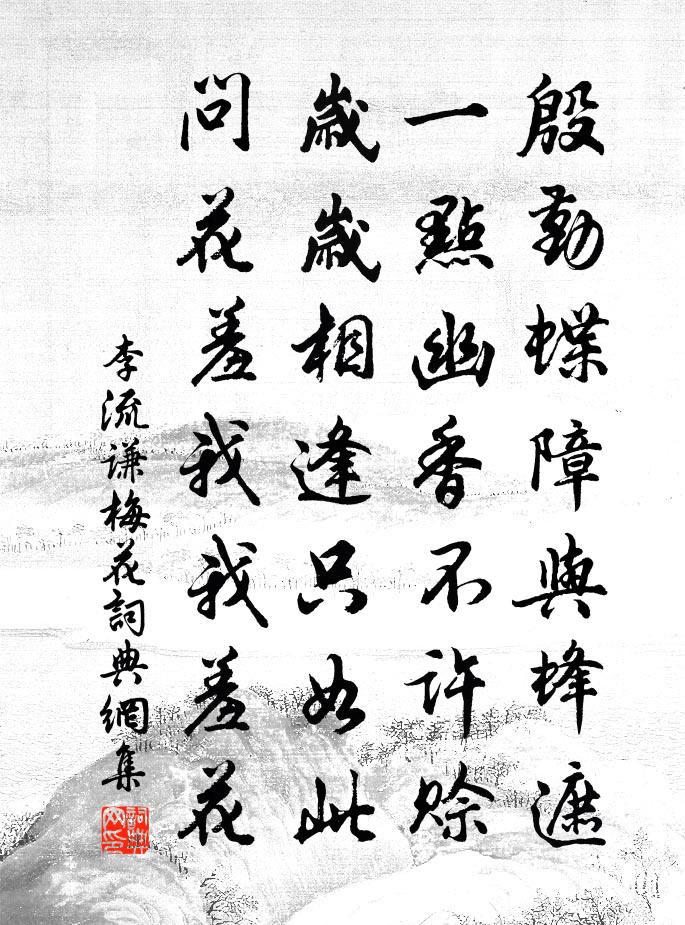 殷勤蝶障與蜂遮
一點幽香不許賒
歲歲相逢只如此
問花羞我我羞花
李流謙梅花詞典網集